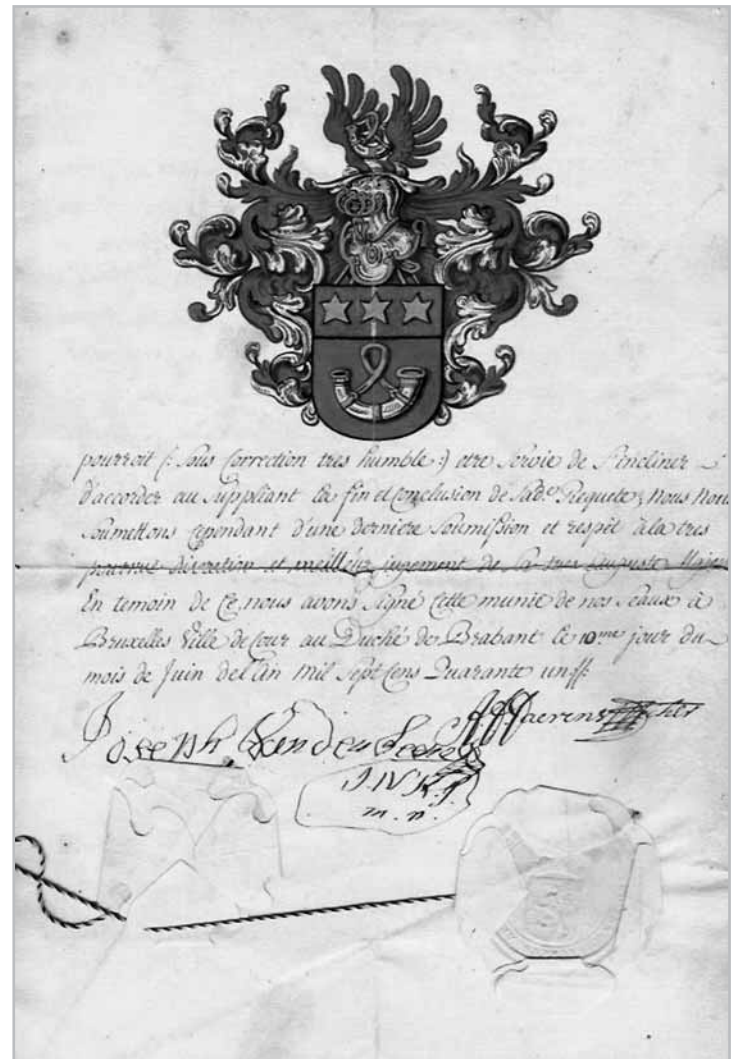 pourroit (: Sous Correction tres humble :) etre servie de s'incliner
d'accorder au Suppliant la fin et Conclusion de Sad.e Requete, Nous Nous
Soumettons cependant d'une derniere Soumission et respit à la tres
pourvue discretion et meilleur jugement de Sa tres Auguste Majes
En temoin de Ce, nous avons Signé Cette munie de nos Seaux à
Bruxelles Ville de Cour au Duché de Brabant le 10me jour du
mois de Juin de l'An mil Sept Cens Quarante un
Joseph Vanden Leene
m. p.